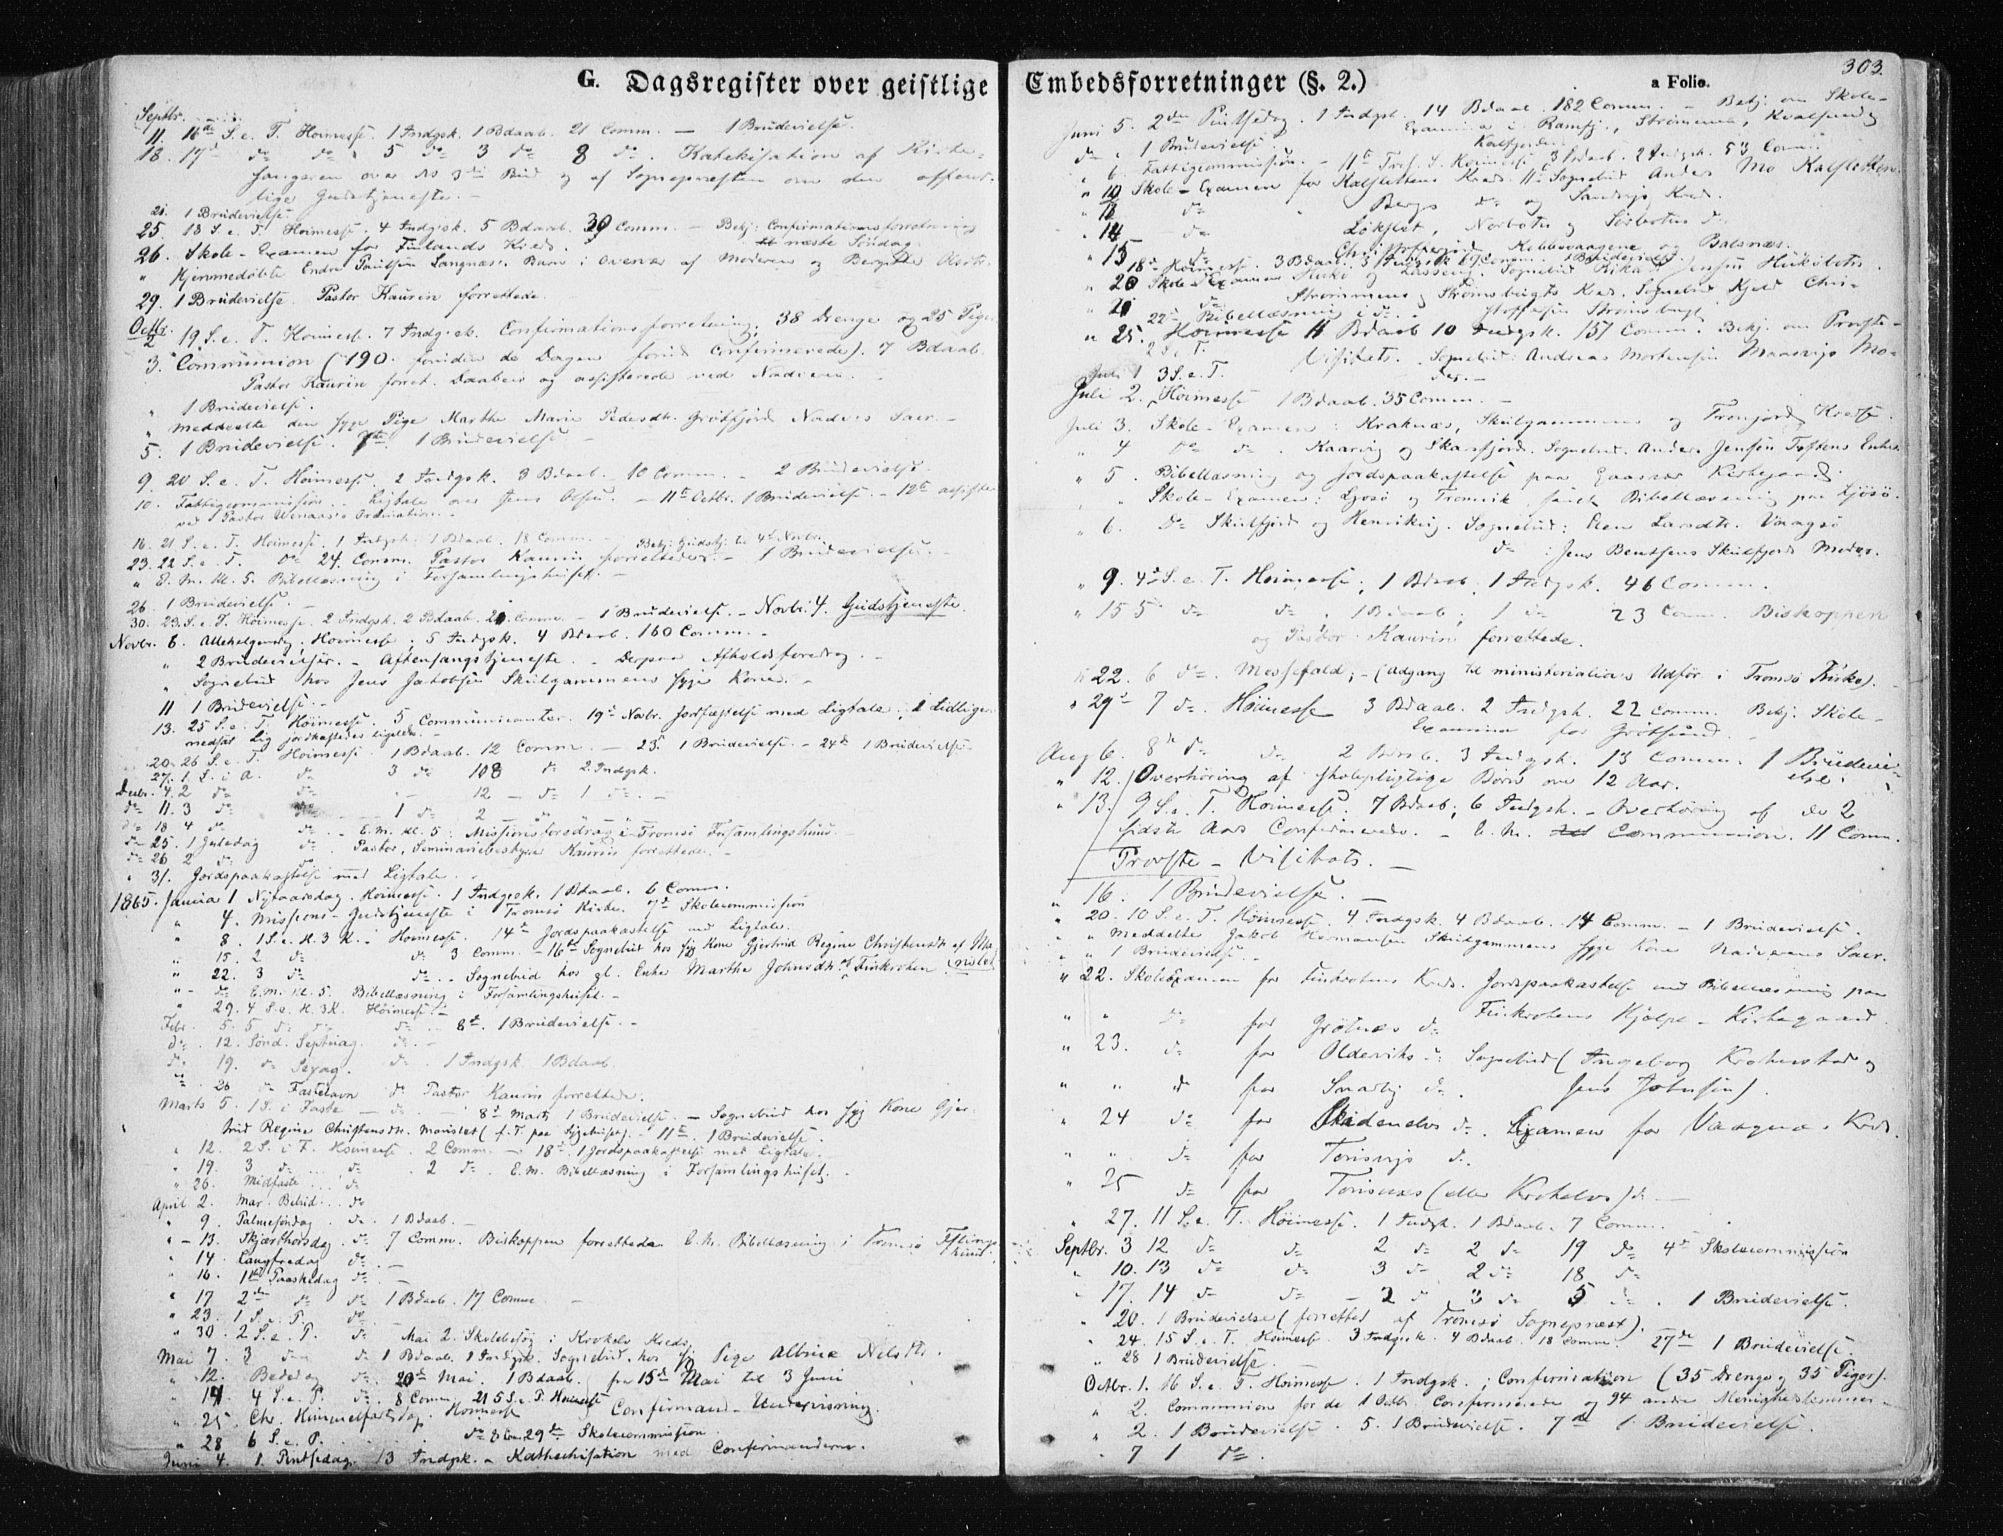 G. Dagsregister over geistlige
Septbr.
11. 16de S. e. T. Høimesse. 1 Indgsk. 1 Bdaab. 21 Comm. — 1 Brudevielse.
18. 17de do do 5 do 3 do 8 do. Katekisation af Kirke-
sangeren over No 3die Bud og af Sognepræsten om den offent-
lige Gudstjeneste. —
21. 1 Brudevielse.
25. 18 S. e. T. Høimesse. 4 Indgsk. 5 Bdaab. 39 Comm. — Bekj: Confirmationsforretning
næste Søndag.
26. Skole-Examen for Finlands Kreds.
" Hjemmedøbte Endre Paulsen Langnæs. Barn i Overvær af Moderen og
29. 1 Brudevielse. Pastor Kaurin forrettede.
Octbr.
2 19 S. e. T. Høimesse. 7 Indgsk. Confirmationsforretning. 38 Drenge og 25 Piger
3. Communion (190 foruden de Dagen forud Confirmerede). 7 Bdaab.
Pastor Kaurin forret. Daaben og assisterede ved Nadveren. —
" 1 Brudevielse.
" meddeelte den syge Pige Marthe Marie Pedersdtr. Grøtfjord Nadv.s Sacr. —
5. 1 Brudevielse. 7de 1 Brudevielse —
9. 20 S. e. T. Høimesse. 2 Indgsk. 3 Bdaab. 10 Comm. — 2 Brudevielse.
10. Fattigcommission. — Ligtale over Jens Olsen. — 11te Octbr. 1 Brudevielse. — 12te assisterede
ved Pastor Ordination. —
16. 21 S. e. T. Høimesse. 1 Indgsk. 1 Bdaab. 18 Comm. — Bekj: Gudstj. te 4de Novbr.
23. 22 S. e. T. do 24. Comm. Pastor Kaurin forrettede. — 1 Brudevielse. —
" E. M. Kl. 5. Bibellæsning i Forsamlingshuset. —
26. 1 Brudevielse. —
30. 23. S. e. T. Høimesse. 2 Indgsk. 2 Bdaab. 21 Comm. — 1 Brudevielse. — Novbr. 4. Gudstjeneste.
Novbr. 6. Allehelgensdag. Høimesse. 5 Indgsk. 4 Bdaab. 160 Comm. —
" 2 Brudevielser. — Aftensangstjeneste. — Derpaa Afholdsforedrag. —
" Sognebud hos Jens Jakobsen Skulgammens syge Kone. —
11 1 Brudevielse. —
13. 25 S. e. T. Høimesse. 5 Communicanter. 19de Novbr. Jordfæstelse med Ligtale,
medførte Lig jordkastedes ligeledes. —
20. 26 S. e. T. Høimesse. 1 Bdaab. 12 Comm. — 23de 1 Brudevielse. — 24de 1 Brudevielse.
27. 1. S. i A. do 3 do 108 do 2 Indgsk.
Decbr. 4. 2 do do 12 — do 1 do. —
do 11. 3 do 1 do 2
do 18 4 do do. — E. M. Kl. 5: Missionsforedrag i Tromsø Forsamlingshuus.
do 25. 1 Juledag do. Pastor, Seminariebestyrer Kaurin forrettede. —
do 26 2 do do —
" 31. Jordspaakastelse med Ligtale. —
1865. Januar 1 Nytaarsdag. Høimesse. 1 Indgsk. 1 Bdaab. 6 Comm.
" 4. Missions-Gudstjeneste i Tromsø Kirke. 7de Skolecommission
" 8. 1 S. e. H. 3 K. Høimesse. 14de Jordspaakastelse med Ligtale.
" 15. 2 do do 3 Comm. — 16de Sognebud hos syg Kone Gjertrud Regine Christensdtr. af Ma-
" 22. 3 do do. — Sognebud hos gl. Enke Marthe Johnsdtr. af Finkrohen.
nislet
" — do E. M. Kl. 5. Bibellæsning i Forsamlingshuset. —
" 29. 4 S. e. H. 3 K. Høimesse. —
Febr. 5. 5 do do. 8de. 1 Brudevielse. —
do. 12. Sønd. Septuag. do. —
do 19. do Sexag. do. 1 Indgsk. 1 Bdaab.
do. 26 do Fastelavn do Pastor Kaurin forrettede.
Marts 5. 1 S. i Faste — do — 8de Marts 1 Brudevielse. — Sognebud hos syg Kone Gjer-
trud Regine Christensdtr. Manislet (f. T. paa Sygehuset). — 11te. 1 Brudevielse.
" 12. 2 S. i F. Høimesse. 2 Comm. — 18de 1 Jordspaakastelse med Ligtale.
" 19. 3 do 2 do. E. M. Bibellæsning i Forsamlingshuset.
" 26. Midfaste do
April 2. Mar. Bebud. do
" 9. Palmesøndag do. 1 Bdaab. —
" — 13. Skjærthorsdag. do 7 Comm. Biskoppen forrettede E. M. Bibellæsning i Tromsø Fsamlings-
huus.
" 14 Langfredag do. —
" 16. 1ste Paaskedag do. —
" 17 2den do do 1 Bdaab. 17 Comm. —
" 23. 1 S. e. P. do
" 30. 2 S. e. P. do Mai 2. Skolebesøg i Krokelv Kreds.
Mai 7. 3 do do 1 Bdaab. 1 Indgsk. Sognebud hos syg Pige Albine Nilsdtr.
" 12. Bededag do. 20de Mai. 1 Bdaab. fra 15de Mai til 3 Juni
" 14 4 S. e. P. do. 8 Comm. 21 5 S. e. P. Høimesse
" 25. Chr. Himmelfartsdag. Høimesse Confirmand-Undervisning.
" 28 6 S. e. P. do 8 Com. 29de Skolecommission.
Juni 4. 1. Pintsedag. 13 Indgsk. — Kathechisation med Confirmanderne.
Embedsforretninger (§. 2.)
a Folio.
303.
Juni 5. 2den Pintsedag. 1 Indgsk. 14 Bdaab. 182 Comm. — Bekj. om Skole-
Examina i Ramfj., Strømmen, Kvalsund og
do " 1 Brudevielse. Kalfjorden.
" 6. Fattigcommission. — 11te Tref. S. Høimesse 3 Bdaab. 2 Indgsk. 53 Comm.
" 10 Skole-Examen for Kalslettens Kreds. 11te Sognebud Anders Mo Kalsletten.
" 13 do Bergs do og Sandvigs Kreds.
" 14 — do — Løkslet, Norbotn og Sørbotn do
" 15 do Christoffer Kobbevaagene og Balsnæs.
18de Høimesse. 3 Bdaab. 3 Indgsk. Comm. 1 Brudevielse.
" 20 Skole-Examen
" 21 do Strømmens og Strømsbugts Kreds. Sognebud Kjeld Chri-
22de Bibellæsning i do. stoffersen Strømsbugt
" 25. Høimesse 11 Bdaab 10 Indgsk. 151 Comm. Bekj. om Provste-
2 S. e. T. Visitats. Sognebud: Andreas Mortensen Maasvigs Mo-
Juli 1 3 S. e. T. der. —
Juli 2. Høimesse 1 Bdaab. 35 Comm. —
Juli 3. Skole-Examen i Kraknæs, Skulgammens og Tronjord Kredse.
" 4 do do. Kaaring og Skarsfjord. Sognebud. Anders Jensen Toftens Enke.
" 5. Bibellæsning og Jordspaakastelse paa Gaasvær Kirkegaard.
" " Skole-Examen: Lyøsø og Tromvik, samt Bibellæsning paa Ljøsø.
" 6. do Skulsfjord og Henrikvig. Sognebud: Elen Larsdtr. Vaagsø
do : Jens Bentsens Skulsfjord Moder.
" 9. 4de S. e. T. Høimesse; 1 Bdaab. 1 Indgsk. 46 Comm.
" 15 5 do do. 1 Bdaab. 1 do 23 Comm. Biskoppen
og Pastor Kaurin forrettede.
" 22. 6 do. Messefald; — (Adgang til ministerialia's Udfør. i Tromsø Kirke). —
" 29de 7 do. Høimesse 3 Bdaab. 2 Indgsk. 22 Comm. Bekj. Skole-
Examina for Grøtsund. —
Aug 6. 8de do do 2 Bdaab. 3 Indgsk. 13 Comm. 1 Brudevi-
else.
" 12. Overhøring af skolepligtige Børn over 12 Aar.
" 13. 9 S. e. T. Høimesse. 7 Bdaab. 6 Indgsk. — Overhøring af de 2
sidste Aars Confirmerede. — E. M. Communion. 11 Comm.
Provste-Visitats. —
" 16. 1 Brudevielse. —
" 20. 10 S. e. T. Høimesse. 4 Indgsk. 4 Bdaab. 14 Comm. — 1 Brudevielse.
" " Meddelte Jakob Hermansen Skulgammens syge Kone Nadverens Sacr.
" " 1 Brudevielse. —
" 22. Skoleexamen for Finkrohens Kreds. Jordspaakastelse med Bibellæsning paa
" " do for Grøtnæs do Finkrohens Hjelpe-Kirkegaard
" 23. do for Oldervik do Sognebud (Ingebog Krokenstad og
" " do for Snarby do. Jens Johnsen).
" 24 do for Skidenelvs do. Examen for Vaagnæs Kreds.
" " do for Torisvigs do.
" 25 do for Tonsnæs (eller Krokelvs) do. —
" 27. 11 S. e. T. Høimesse. 1 Indgsk. 1 Bdaab. 7 Comm. —
Septbr. 3 12 do do 2 do 2 do 19 do 4de Skolecommission
" 10. 13 do do 3 do 2 do 18 do
" 17. 14 do do — 2 do 3 do 5 do. 1 Brudevielse.
" 20. 1 Brudevielse (forrettet af Tromsø Sognepræst).
" 24. 15 S. e. T. Høimesse. 3 Indgsk. 4 Bdaab. 18 Comm. 27de 1 Brudevielse.
" 28 1 Brudevielse.
Octbr. 1. 16 S. e. T. Høimesse. 1 Indgsk.; Confirmation (35 Drenge og 35 Piger).
" 2. Communion for de 1 Octbr. Confirmerede og 94 andre Menighedslemmer —
" 2. 1 Brudevielse. 5. 1 Brudevielse. 7de 1 Brudevielse.
" 7 1 do.